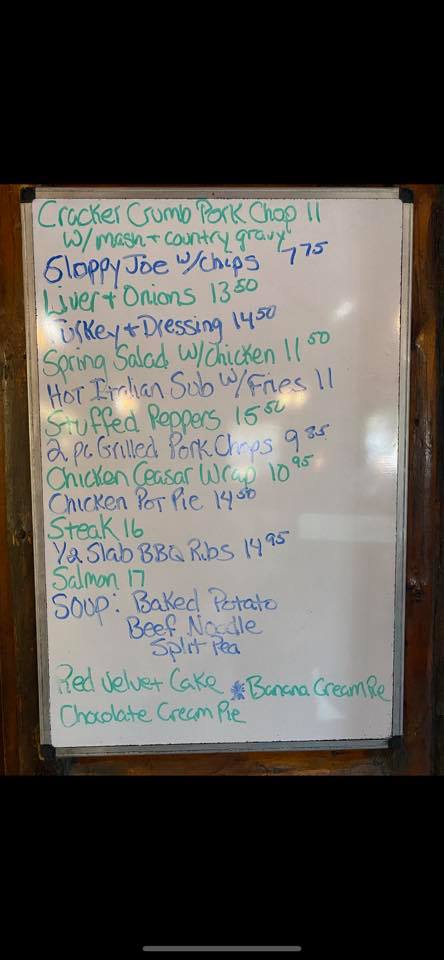 Cracker Crumb Pork Chop 11
w/mash + country gravy
Sloppy Joe w/chips 7 75
Liver + Onions 13 50
Turkey + Dressing 14 50
Spring Salad w/chicken 11 50
Hot Italian Sub w/Fries 11
Stuffed Peppers 15 50
2 pc Grilled Pork Chops 9 85
Chicken Ceasar Wrap 10 95
Chicken Pot Pie 14 50
Steak 16
1/2 Slab BBQ Ribs 14 95
Salmon 17
Soup: Baked Potato
Beef Noodle
Split Pea
Red Velvet Cake * Banana Cream Pie
Chocolate Cream Pie